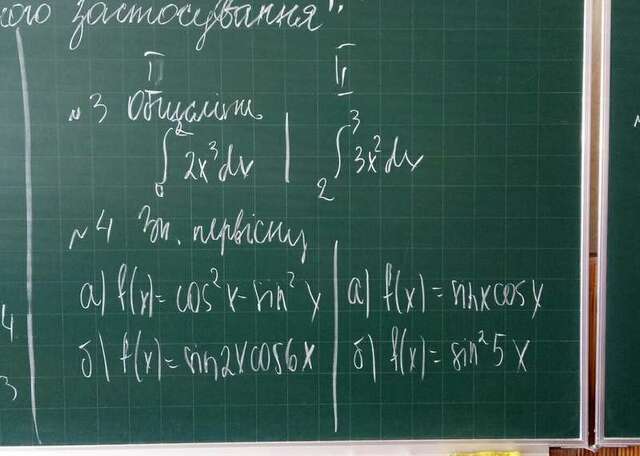 кого застосування".
I II
№3 Обчислить
∫₀² 2x³dx | ∫₂³ 3x²dx
№4 Зн. первісну
а) f(x)=cos²x-sin²x а) f(x)=sinxcosx
б) f(x)=sin2xcos6x б) f(x)=sin²5x
4
3